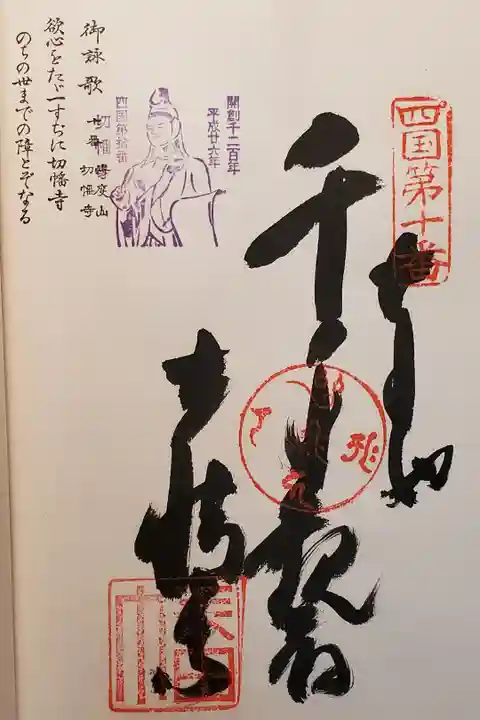 四国第十番
奉納
千手観音
切幡寺
開創千二百年
平成廿六年
四国第拾番
切幡寺
御詠歌
十番 得度山 切幡寺
欲心をたゞ一すぢに切幡寺
のちの世までの障とぞなる